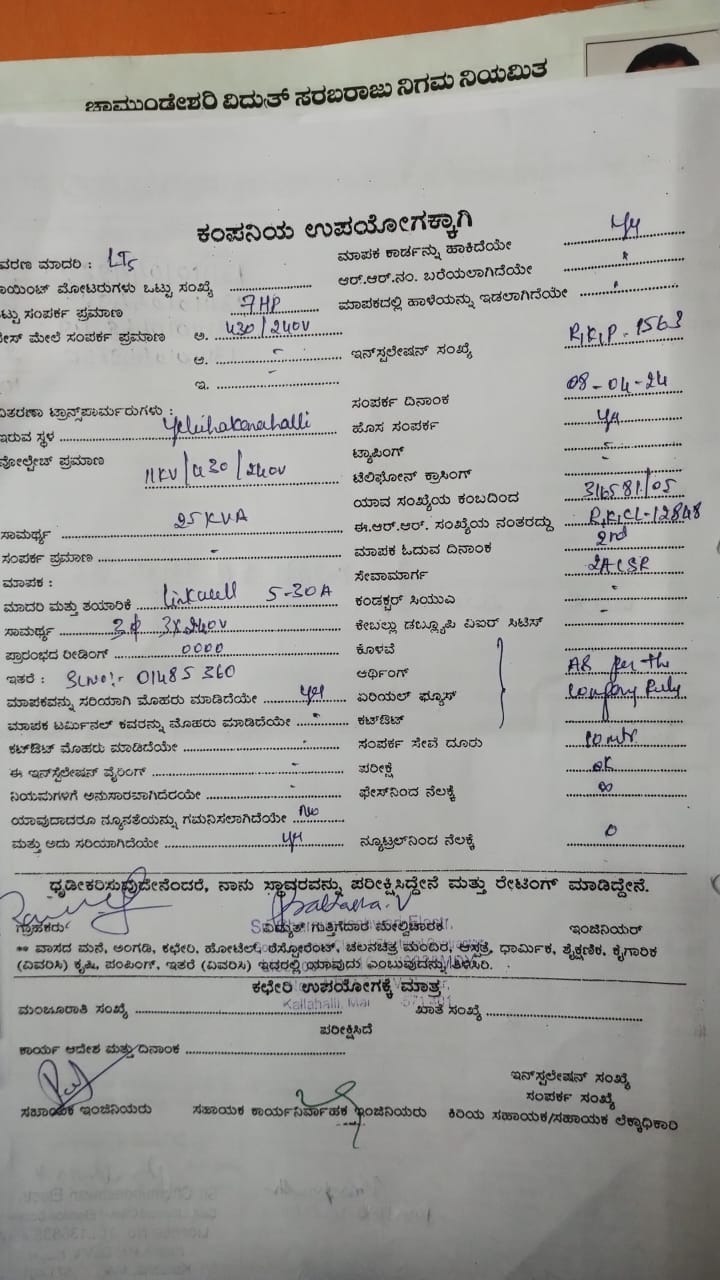 ಚಾಮುಂಡೇಶರಿ ವಿದ್ಯುತ್ ಸರಬರಾಜು ನಿಗಮ ನಿಯಮಿತ
ಕಂಪನಿಯ ಉಪಯೋಗಕ್ಕಾಗಿ
ವರಣ ಮಾದರಿ : LT5
ಮಾಪಕ ಕಾರ್ಡನ್ನು ಹಾಕಿದೆಯೇ
ಾಯಿಂಟ್ ಮೋಟರುಗಳು ಒಟ್ಟು ಸಂಖ್ಯೆ
ಆರ್.ಆರ್.ನಂ. ಬರೆಯಲಾಗಿದೆಯೇ
ಟ್ಟು ಸಂಪರ್ಕ ಪ್ರಮಾಣ 7HP
ಮಾಪಕದಲ್ಲಿ ಹಾಳೆಯನ್ನು ಇಡಲಾಗಿದೆಯೇ
ೇಸ್ ಮೇಲೆ ಸಂಪರ್ಕ ಪ್ರಮಾಣ ಅ. 430/240V
ಆ. -
ಇನ್‌ಸ್ಪಲೇಷನ್ ಸಂಖ್ಯೆ RKP-1563
ಇ.
ಸಂಪರ್ಕ ದಿನಾಂಕ 08-04-24
ವಿತರಣಾ ಟ್ರಾನ್ಸ್‌ಪಾರ್ಮರುಗಳು :
ಇರುವ ಸ್ಥಳ
ಹೊಸ ಸಂಪರ್ಕ
ವೋಲ್ಟೇಚ್ ಪ್ರಮಾಣ 11KV/430/240V
ಟ್ಯಾಪಿಂಗ್ -
ಟೆಲಿಫೋನ್ ಕ್ರಾಸಿಂಗ್ -
ಯಾವ ಸಂಖ್ಯೆಯ ಕಂಬದಿಂದ
ಸಾಮರ್ಥ್ಯ 25KVA
ಈ.ಆರ್.ಆರ್. ಸಂಖ್ಯೆಯ ನಂತರದ್ದು
ಸಂಪರ್ಕ ಪ್ರಮಾಣ -
ಮಾಪಕ ಓದುವ ದಿನಾಂಕ 2nd
ಮಾಪಕ :
ಸೇವಾಮಾರ್ಗ 2ACSR
ಮಾದರಿ ಮತ್ತು ತಯಾರಿಕೆ Linkwell 5-30A
ಕಂಡಕ್ಟರ್ ಸಿಯುವಿ -
ಸಾಮರ್ಥ್ಯ 3φ 3x240V
ಕೇಬಲ್ಲು ಡಬ್ಲ್ಯೂಪಿ ಎಐರ್ ಸಿಟಿಸ್ -
ಪ್ರಾರಂಭದ ರೀಡಿಂಗ್ 0000
ಕೊಳವೆ
ಇತರೆ : SlNo:- 01485360
ಆರ್ಥಿಂಗ್ As per the
ಮಾಪಕವನ್ನು ಸರಿಯಾಗಿ ಮೊಹರು ಮಾಡಿದೆಯೇ
ಏರಿಯಲ್ ಫ್ಯೂಸ್ Company Ruls
ಮಾಪಕ ಟರ್ಮಿನಲ್ ಕವರನ್ನು ಮೊಹರು ಮಾಡಿದೆಯೇ
ಕಟ್‌ಔಟ್
ಕಟ್‌ಔಟ್ ಮೊಹರು ಮಾಡಿದೆಯೇ
ಸಂಪರ್ಕ ಸೇವೆ ದೂರು 10mtr
ಈ ಇನ್‌ಸ್ಪಲೇಷನ್ ವೈರಿಂಗ್ -
ಪರೀಕ್ಷೆ ok
ನಿಯಮಗಳಿಗೆ ಅನುಸಾರವಾಗಿದೆರಯೇ -
ಫೇಸ್‌ನಿಂದ ನೆಲಕ್ಕೆ ∞
ಯಾವುದಾದರೂ ನ್ಯೂನತೆಯನ್ನು ಗಮನಿಸಲಾಗಿದೆಯೇ No
ಮತ್ತು ಅದು ಸರಿಯಾಗಿದೆಯೇ
ನ್ಯೂಟ್ರಲ್‌ನಿಂದ ನೆಲಕ್ಕೆ 0
ಧೃಡೀಕರಿಸುವುದೇನೆಂದರೆ, ನಾನು ಸ್ಥಾವರವನ್ನು ಪರೀಕ್ಷಿಸಿದ್ದೇನೆ ಮತ್ತು ರೇಟಿಂಗ್ ಮಾಡಿದ್ದೇನೆ.
ಗ್ರಾಹಕರು ವಿದ್ಯುತ್ ಗುತ್ತಿಗೆದಾರ ಮೇಲ್ವಿಚಾರಕ ಇಂಜಿನಿಯರ್
** ವಾಸದ ಮನೆ, ಅಂಗಡಿ, ಕಛೇರಿ, ಹೋಟೆಲ್, ರೆಸ್ಟೋರೆಂಟ್, ಚಲನಚಿತ್ರ ಮಂದಿರ, ಆಸ್ಪತ್ರೆ, ಧಾರ್ಮಿಕ, ಶೈಕ್ಷಣಿಕ, ಕೈಗಾರಿಕ
(ವಿವರಿಸಿ) ಕೃಷಿ, ಪಂಪಿಂಗ್, ಇತರೆ (ವಿವರಿಸಿ) ಇದರಲ್ಲಿ ಯಾವುದು ಎಂಬುವುದನ್ನು ತಿಳಿಸಿರಿ.
ಕಛೇರಿ ಉಪಯೋಗಕ್ಕೆ ಮಾತ್ರ
ಮಂಜೂರಾತಿ ಸಂಖ್ಯೆ ಖಾತೆ ಸಂಖ್ಯೆ
ಪರೀಕ್ಷಿಸಿದೆ
ಕಾರ್ಯ ಆದೇಶ ಮತ್ತು ದಿನಾಂಕ
ಇನ್‌ಸ್ಪಲೇಷನ್ ಸಂಖ್ಯೆ
ಸಂಪರ್ಕ ಸಂಖ್ಯೆ
ಸಹಾಯಕ ಇಂಜಿನಿಯರು ಸಹಾಯಕ ಕಾರ್ಯನಿರ್ವಾಹಕ ಇಂಜಿನಿಯರು ಕಿರಿಯ ಸಹಾಯಕ/ಸಹಾಯಕ ಲೆಕ್ಕಾಧಿಕಾರಿ